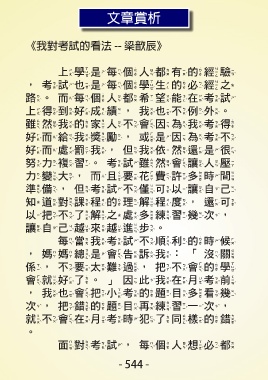 文章賞析
《我對考試的看法 -- 梁歆辰》
上學是每個人都有的經驗
，考試也是每個學生的必經之
路。而每個人都希望能在考試
上得到好成績，我也不例外。
雖然我的家人不會因為我考得
好而給我獎勵，或是因為考不
好而處罰我，但我依然還是很
努力複習。考試雖然會讓人壓
力變大，而且要花費許多時間
準備，但考試不僅可以讓自己
知道對課程的理解程度，還可
以把不了解之處多練習幾次，
讓自己越來越進步。
每當我考試不順利的時候
，媽媽總是會告訴我：「沒關
係，不要太難過，把不會的學
會就好了。」因此我在月考前
，我也會把小考的題目多看幾
次，把錯的題目再練習一次，
就不會在月考時犯了同樣的錯
。
面對考試，每個人想必都
- 544 -